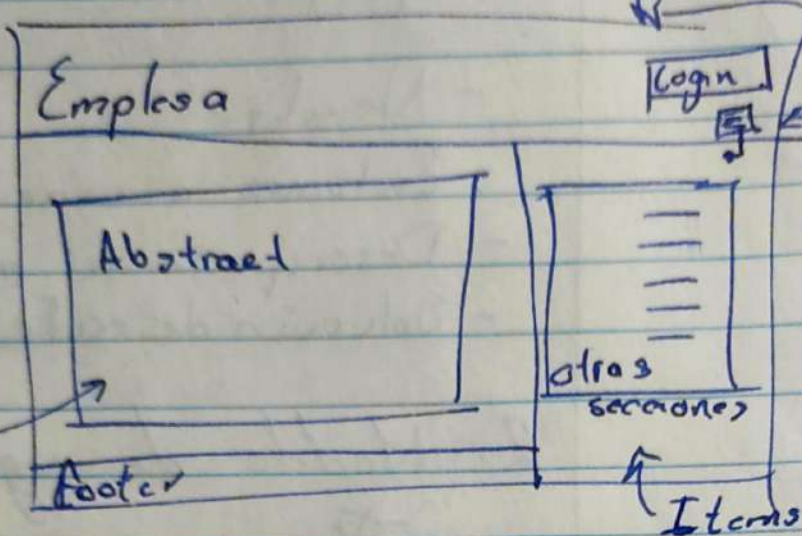 Empresa
Login
Abstract
otras
secciones
footer
Items